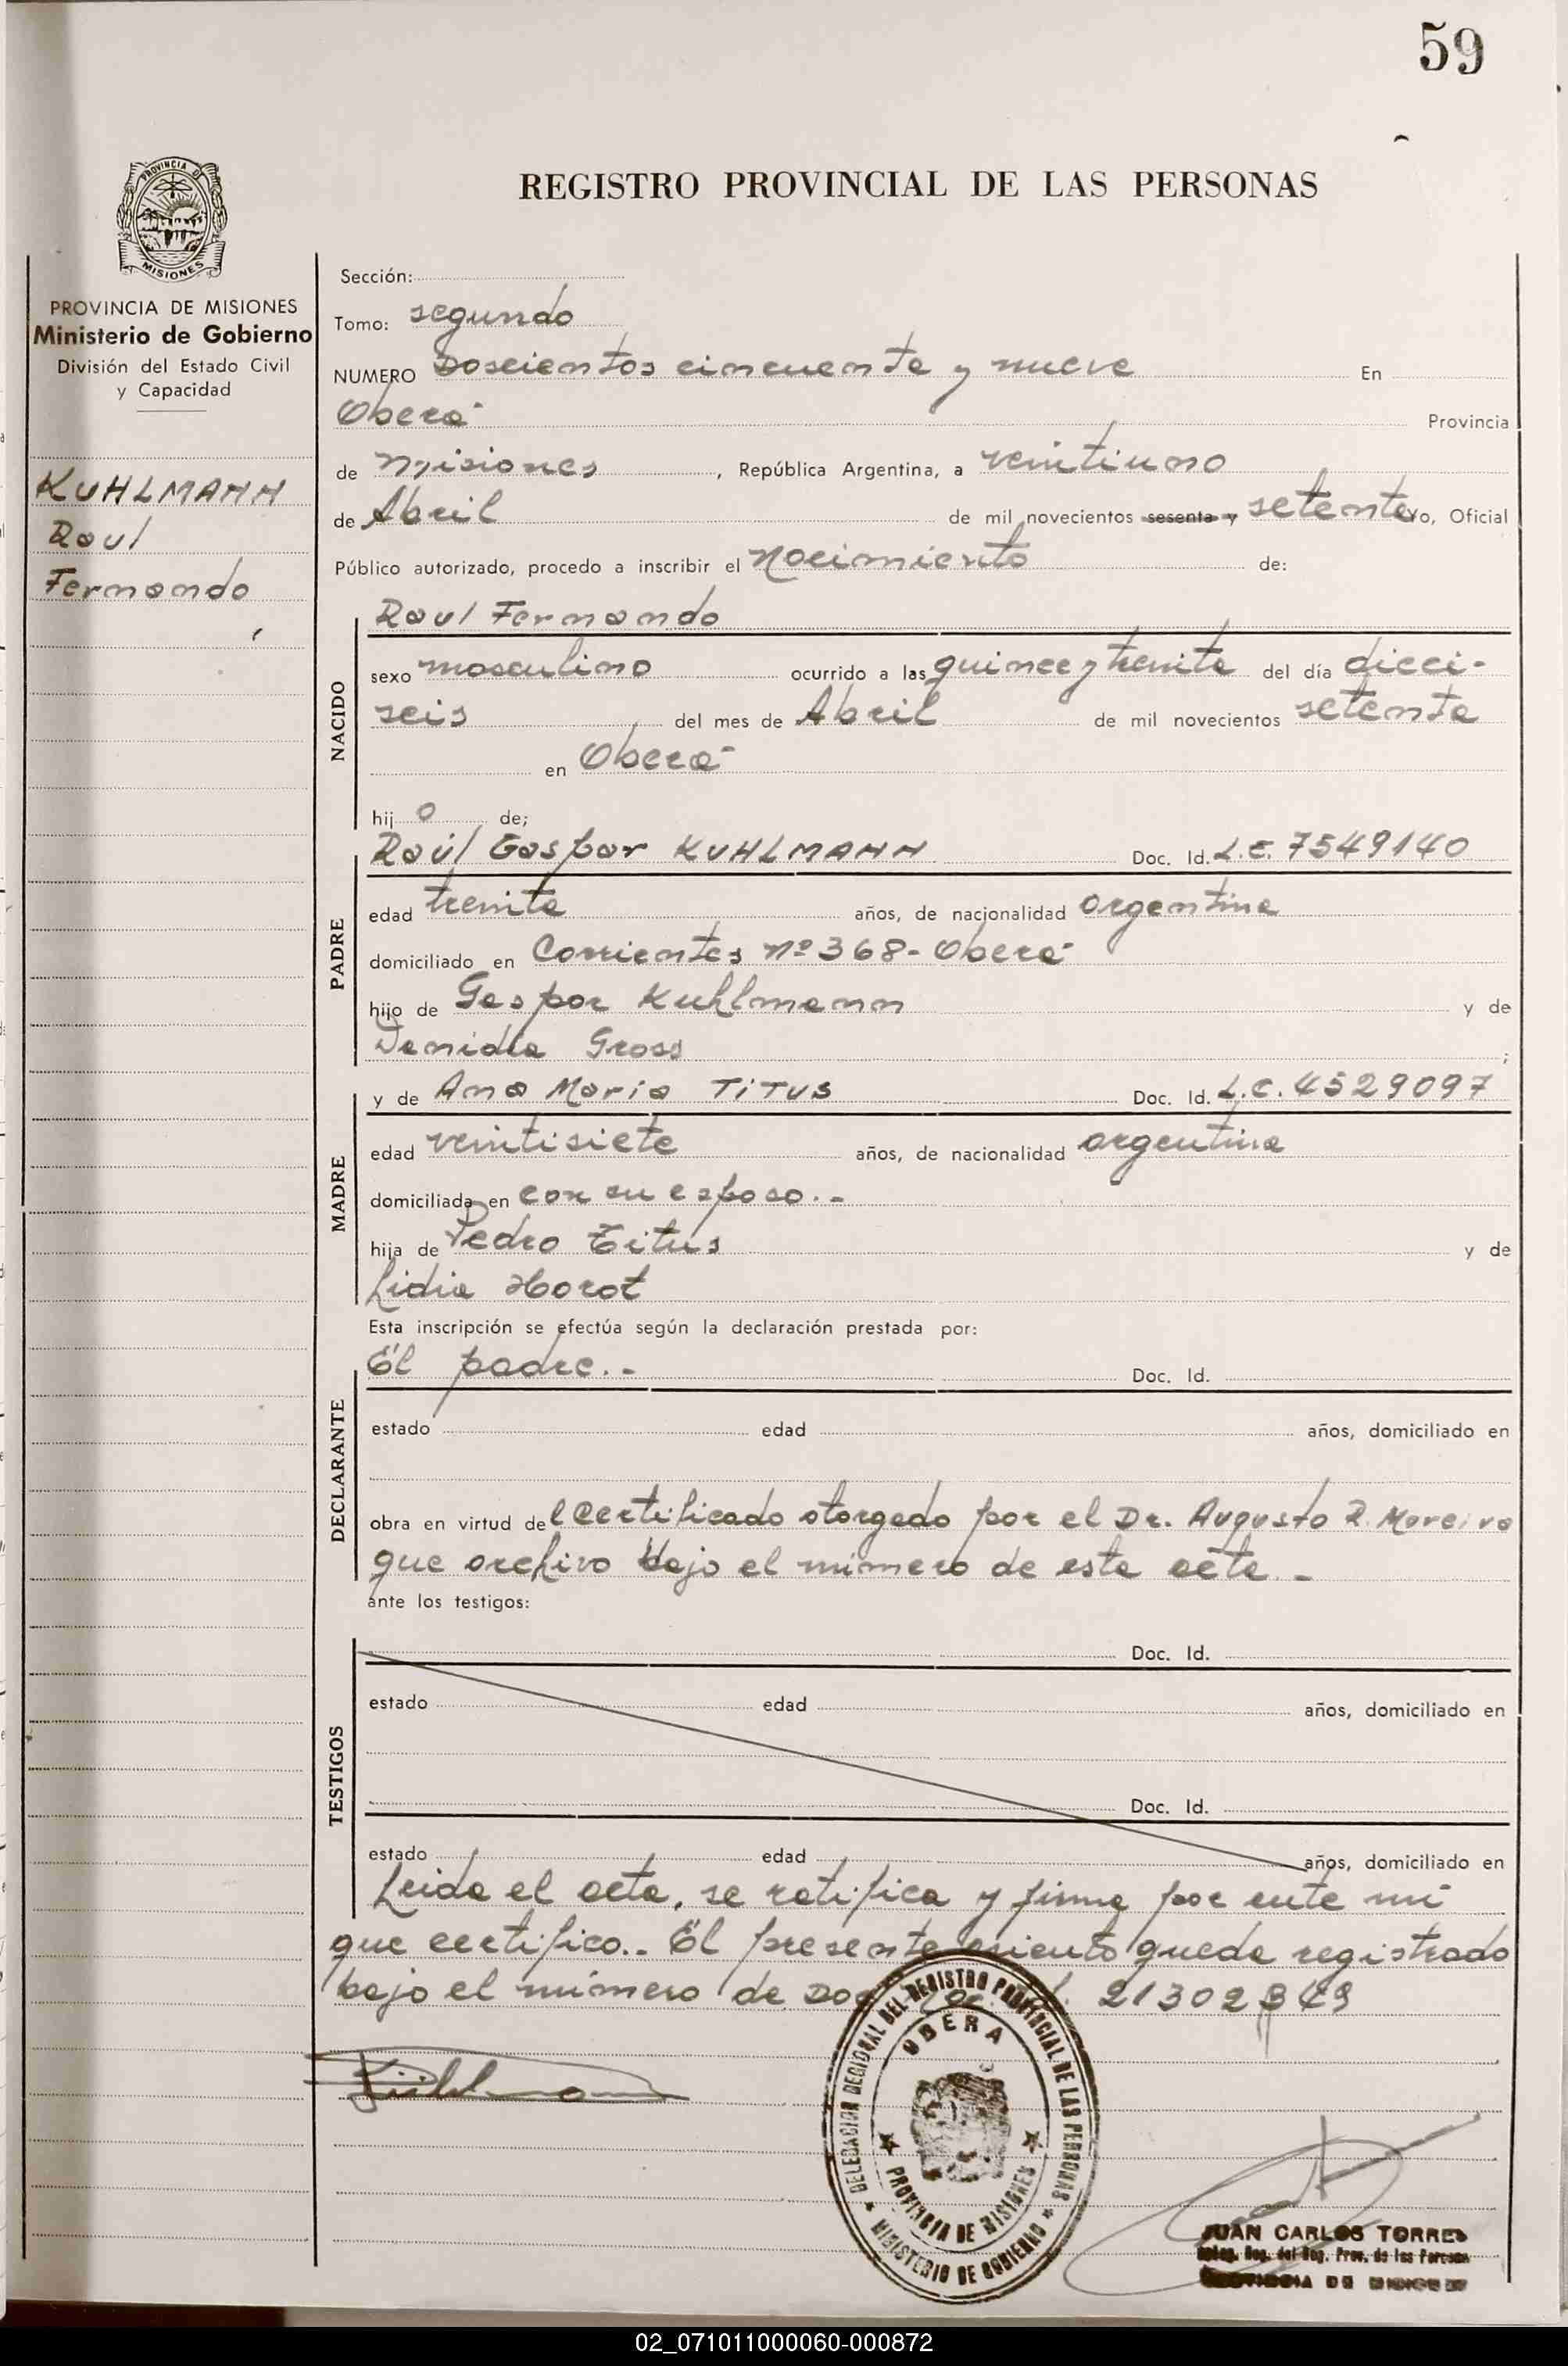 59
REGISTRO PROVINCIAL DE LAS PERSONAS
PROVINCIA DE
MISIONES
PROVINCIA DE MISIONES
Ministerio de Gobierno
División del Estado Civil
y Capacidad
KUHLMANN
Raul
Fernando
Sección:
Tomo: segundo
NUMERO Doscientos cincuenta y nueve En
Oberá Provincia
de Misiones, República Argentina, a veintiuno
de Abril de mil novecientos sesenta y setenta Yo, Oficial
Público autorizado, procedo a inscribir el Nacimiento de:
NACIDO
Raul Fernando
sexo masculino ocurrido a las quince y treinta del día dieci-
seis del mes de Abril de mil novecientos setenta
en Oberá
hij o de;
PADRE
Raúl Gaspar KUHLMANN Doc. Id. L.E. 7549140
edad treinta años, de nacionalidad argentina
domiciliado en Corrientes Nº 368- Oberá
hijo de Gaspar Kuhlmann y de
Gross ;
MADRE
y de Ana Maria TITUS Doc. Id. L.C. 4529097
edad veintisiete años, de nacionalidad argentina
domiciliada en con su esposo.-
hija de Pedro Titus y de
Lidia Horot
Esta inscripción se efectúa según la declaración prestada por:
DECLARANTE
El padre.- Doc. Id.
estado edad años, domiciliado en
obra en virtud del Certificado otorgado por el Dr. Augusto R. Moreira
que archivo bajo el número de este acta.-
ante los testigos:
TESTIGOS
Doc. Id.
estado edad años, domiciliado en
Doc. Id.
estado edad años, domiciliado en
Leida el acta, se ratifica y firma por ante mi
que certifico.. El presente asiento queda registrado
bajo el número de Doc.
DELEGACION REGIONAL DEL REGISTRO PROVINCIAL DE LAS PERSONAS
OBERA
PROVINCIA DE MISIONES
MINISTERIO DE GOBIERNO
JUAN CARLOS TORRES
Deleg. Reg. del Reg. Prov. de las Personas
PROVINCIA DE MISIONES
02_071011000060-000872